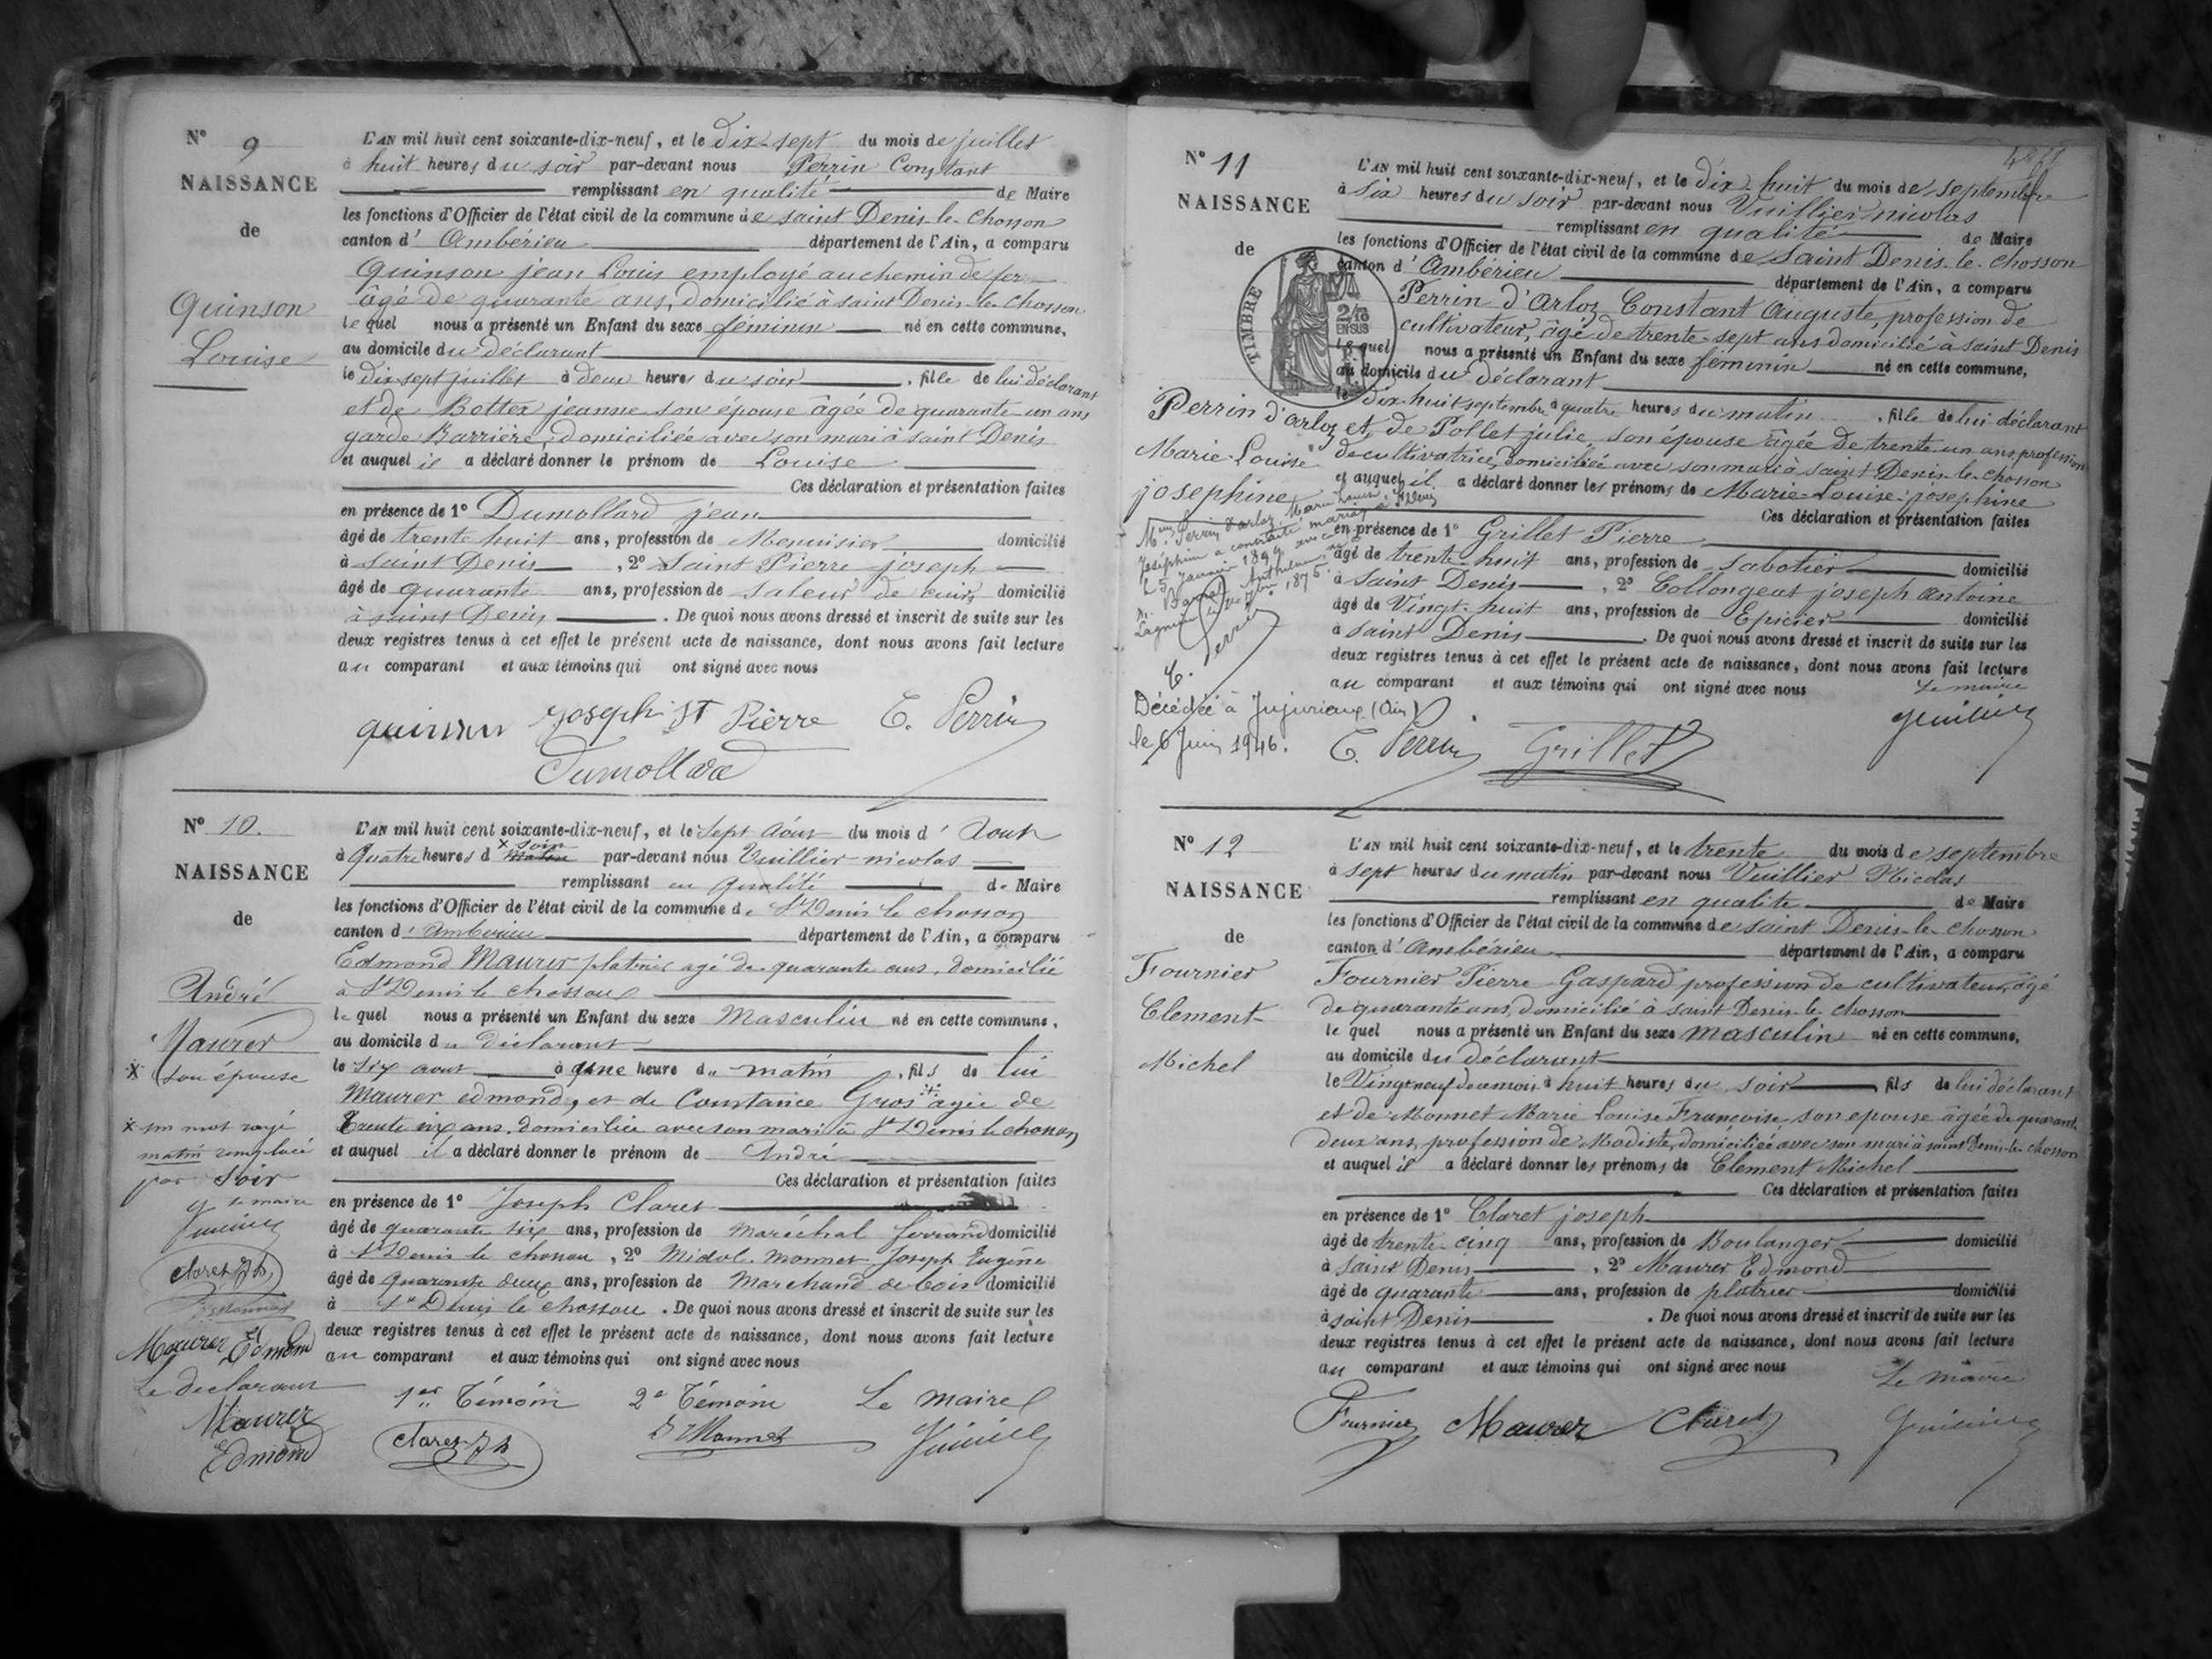 N° 9
NAISSANCE
de
Quinson
Louise
L'AN mil huit cent soixante-dix-neuf, et le dix-sept du mois de juillet
à huit heures du soir par-devant nous Perrin Constant
remplissant en qualité de Maire
les fonctions d'Officier de l'état civil de la commune de saint Denis-le-Chosson
canton d'Ambérieu département de l'Ain, a comparu
Quinson jean Louis employé au chemin de fer
âgé de quarante ans, domicilié à saint Denis-le-Chosson
lequel nous a présenté un Enfant du sexe féminin né en cette commune,
au domicile du déclarant
le dix sept juillet à deux heures du soir, fille de lui déclarant
et de Bottex jeanne son épouse âgée de quarante-un ans
garde Barrière, domiciliée avec son mari à saint Denis
et auquel il a déclaré donner le prénom de Louise
Ces déclaration et présentation faites
en présence de 1° Dumollard jean
âgé de trente huit ans, profession de Menuisier domicilié
à saint Denis, 2° Saint Pierre joseph
âgé de quarante ans, profession de saleur de cuirs domicilié
à saint Denis. De quoi nous avons dressé et inscrit de suite sur les
deux registres tenus à cet effet le présent acte de naissance, dont nous avons fait lecture
au comparant et aux témoins qui ont signé avec nous
quinson Joseph St Pierre C. Perrin
Dumollard
N° 10.
NAISSANCE
de
André
Maurer
x son épouse
x un mot rayé
matin remplacé
par soir
le maire
Claret Jh
Maurer Edmond
Le déclarant
Maurer
Edmond
L'AN mil huit cent soixante-dix-neuf, et le sept Aout du mois d'Aout
à quatre heures d matin x soir par-devant nous Vuillier nicolas
remplissant en qualité de Maire
les fonctions d'Officier de l'état civil de la commune de St Denis le chosson
canton d'Ambérieu département de l'Ain, a comparu
Edmond Maurer platrier agé de quarante ans, domicilié
à St Denis le chosson
lequel nous a présenté un Enfant du sexe Masculin né en cette commune,
au domicile du déclarant
le six aout à une heure du matin, fils de lui
Maurer edmond, et de Constance Gros x agée de
trente six ans, domiciliée avec son mari à St Denis le chosson
et auquel il a déclaré donner le prénom de André
Ces déclaration et présentation faites
en présence de 1° Joseph Claret
âgé de quarante six ans, profession de maréchal ferrand domicilié
à St Denis le chosson, 2° Midol-Monnet Joseph Eugène
âgé de quarante deux ans, profession de Marchand de bois domicilié
à St Denis le chosson. De quoi nous avons dressé et inscrit de suite sur les
deux registres tenus à cet effet le présent acte de naissance, dont nous avons fait lecture
au comparant et aux témoins qui ont signé avec nous
1er Témoin 2e Témoin Le maire
Claret Jh Monnet
N° 11
NAISSANCE
de
TIMBRE
2/10
EN SUS
Perrin d'arloz
Marie-Louise
josephine
Perrin d'arloz Marie Louise
Joséphine a contracté mariage à
le 5 Janvier 1899 avec
1875.
C. Perrin
Décédée à Jujurieux (Ain)
le 6 Juin 1946.
L'AN mil huit cent soixante-dix-neuf, et le dix-huit du mois de septembre
à six heures du soir par-devant nous Vuillier nicolas
remplissant en qualité de Maire
les fonctions d'Officier de l'état civil de la commune de Saint Denis-le-chosson
canton d'Ambérieu département de l'Ain, a comparu
Perrin d'arloz Constant Auguste, profession de
cultivateur, âgé de trente-sept ans domicilié à saint Denis
lequel nous a présenté un Enfant du sexe féminin né en cette commune,
au domicile du déclarant
le dix huit septembre à quatre heures du matin, fille de lui déclarant
et de Pollet julie, son épouse âgée de trente un ans, profession
de cultivatrice, domiciliée avec son mari à saint Denis-le-chosson
et auquel il a déclaré donner les prénoms de Marie-Louise-josephine
Ces déclaration et présentation faites
en présence de 1° Grillet Pierre
âgé de trente-huit ans, profession de sabotier domicilié
à saint Denis, 2° Collongeat joseph antoine
âgé de Vingt-huit ans, profession de Epicier domicilié
à saint Denis. De quoi nous avons dressé et inscrit de suite sur les
deux registres tenus à cet effet le présent acte de naissance, dont nous avons fait lecture
au comparant et aux témoins qui ont signé avec nous
Le maire
C. Perrin Grillet
N° 12
NAISSANCE
de
Fournier
Clement
Michel
L'AN mil huit cent soixante-dix-neuf, et le trente du mois de septembre
à sept heures du matin par-devant nous Vuillier Nicolas
remplissant en qualité de Maire
les fonctions d'Officier de l'état civil de la commune de saint Denis-le-chosson
canton d'Ambérieu département de l'Ain, a comparu
Fournier Pierre Gaspard profession de cultivateur, âgé
de quarante ans, domicilié à saint Denis-le-chosson
lequel nous a présenté un Enfant du sexe masculin né en cette commune,
au domicile du déclarant
le Vingt neuf du mois à huit heures du soir, fils de lui déclarant
et de Monnet Marie Louise Françoise, son epouse âgée de quarante
deux ans, profession de Modiste, domiciliée avec son mari à saint Denis-le-chosson
et auquel il a déclaré donner les prénoms de Clement Michel
Ces déclaration et présentation faites
en présence de 1° Claret joseph
âgé de trente-cinq ans, profession de Boulanger domicilié
à saint Denis, 2° Maurer Edmond
âgé de quarante ans, profession de platrier domicilié
à saint Denis. De quoi nous avons dressé et inscrit de suite sur les
deux registres tenus à cet effet le présent acte de naissance, dont nous avons fait lecture
au comparant et aux témoins qui ont signé avec nous
Le maire
Fournier Maurer Claret